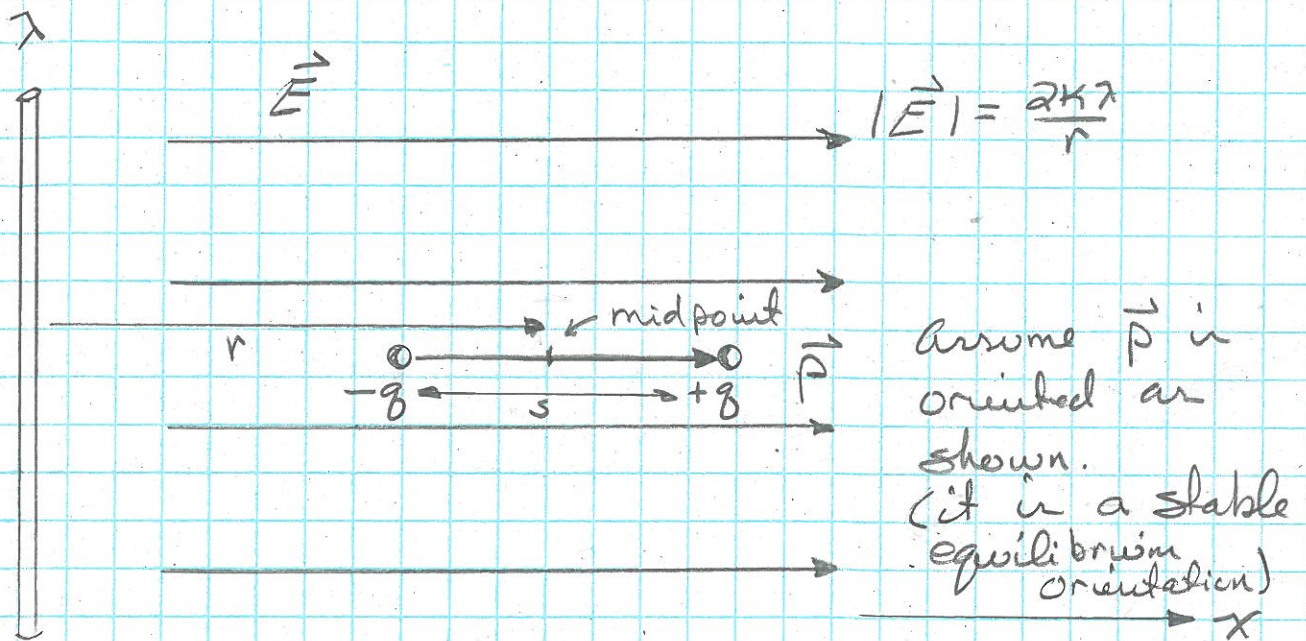 λ
E
|E| = 2Kλ/r
midpoint
r
-q s +q
p
Assume p is
oriented as
shown.
(it is a stable
equilibrium
orientation)
x